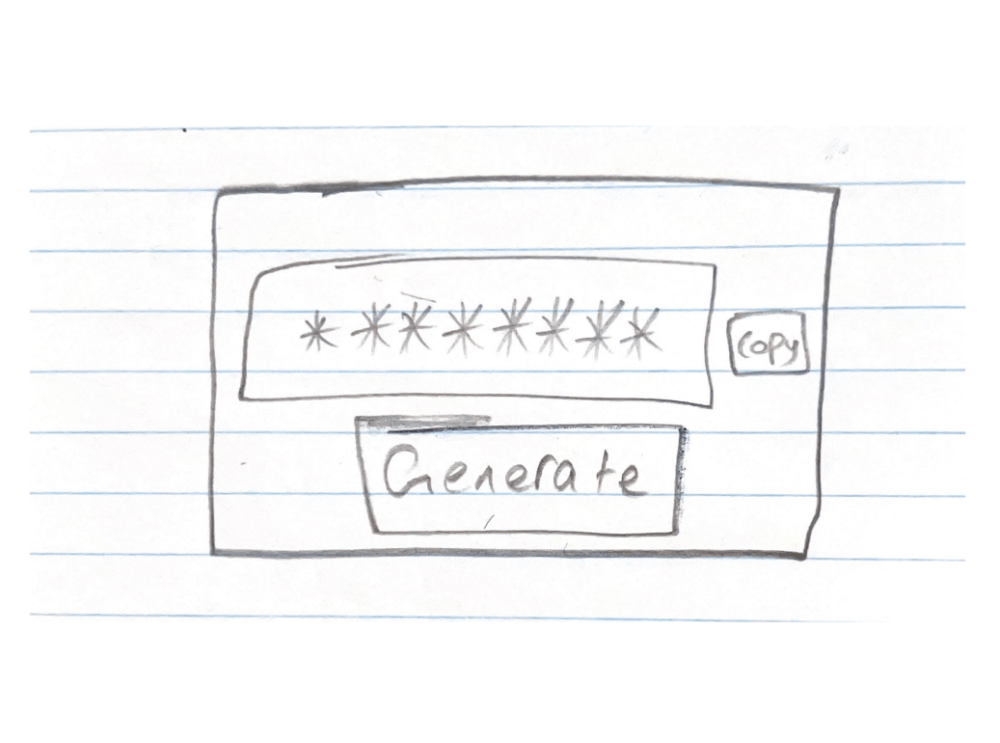 ********
Copy
Generate